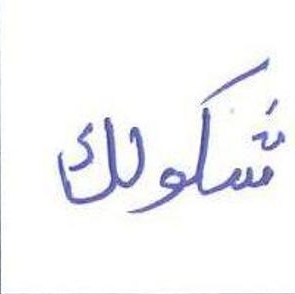 شكولك